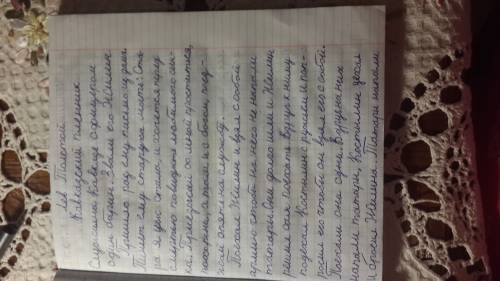 Лев Толстой
Кавказский пленник
Служил на Кавказе офицером
один барин. Звали его Жилин
Пришло раз ему письмо из дома.
Пишет ему старуха мать: Ста-
ра я уж стала и хочется перед
смертью повидать любимого сын-
ка. Приезжай со мной проститься,
похорони, а там и с богом, под-
жай опять на службу.
Поехал Жилин и взял с собой
армию чтоб на него не напали
татары. Они долго шли и Жилин
решил сам поехать. Вдруг к нему
подъехал Костылин с ружьём и поп-
росил его чтобы он взял его с собой.
Поехали они одни. Вдруг на них
напали татары, Костылин уехал
и бросил Жилина. Татары напали